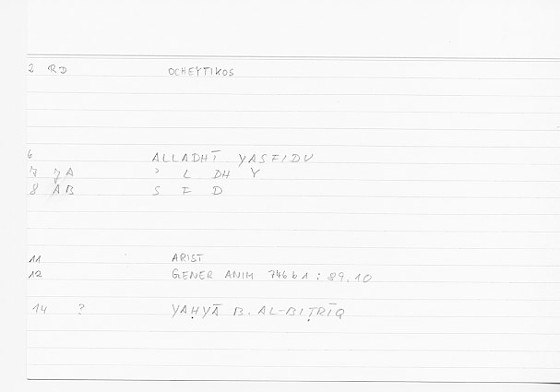 2 RD OCHEYTIKOS
6 ALLADHĪ YASFIDU
7 YA ʾ L DH Y
8 AB S F D
11 ARIST
12 GENER ANIM 746b1 : 89.10
14 ? YAḤYĀ B. AL-BIṬRĪQ